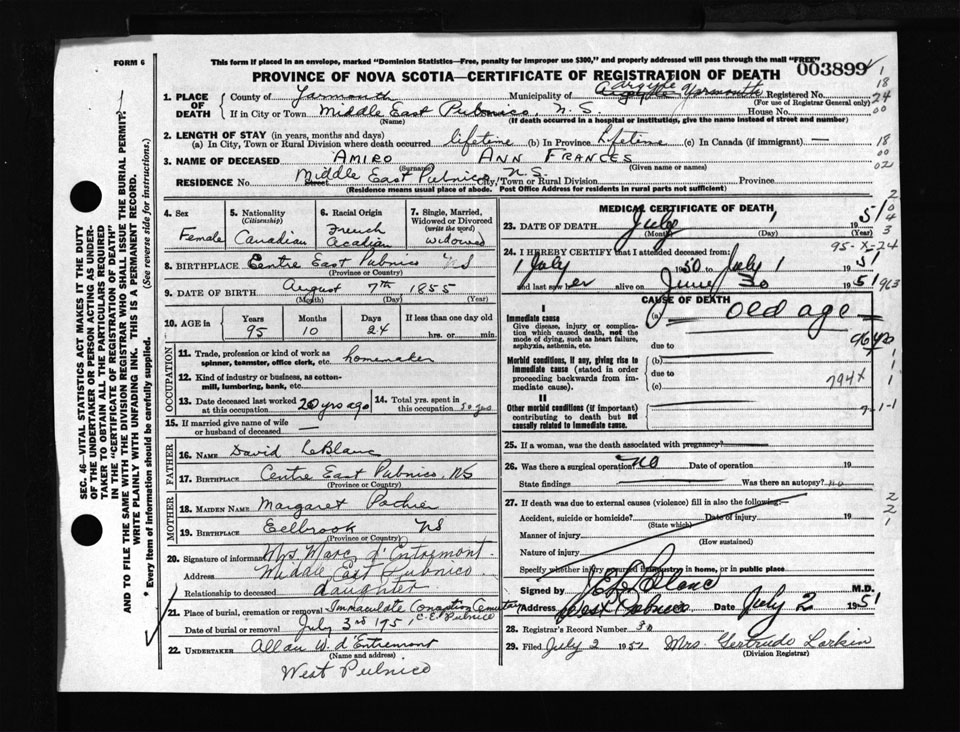 FORM 6
This form if placed in an envelope, marked "Dominion Statistics—Free, penalty for improper use $300," and properly addressed will pass through the mail "FREE"
PROVINCE OF NOVA SCOTIA—CERTIFICATE OF REGISTRATION OF DEATH
003899
1. PLACE OF DEATH County of Yarmouth Municipality of Argyle Yarmouth
Registered No. (For use of Registrar General only)
If in City or Town Middle East Pubnico, N.S. House No.
(Name) (If death occurred in a hospital or institution, give the name instead of street and number)
2. LENGTH OF STAY (in years, months and days)
(a) In City, Town or Rural Division where death occurred lifetime (b) In Province Lifetime (c) In Canada (if immigrant) —
3. NAME OF DECEASED AMIRO ANN FRANCES
(Surname) (Given name or names)
RESIDENCE No. Middle East Pubnico N.S. City/Town or Rural Division Province
Street
(Residence means usual place of abode. Post Office Address for residents in rural parts not sufficient)
4. Sex Female
5. Nationality (Citizenship) Canadian
6. Racial Origin French Acadian
7. Single, Married, Widowed or Divorced (write the word) widowed
8. BIRTHPLACE Centre East Pubnico NS
(Province or Country)
9. DATE OF BIRTH August 7th 1855
(Month) (Day) (Year)
10. AGE in Years 95 Months 10 Days 24 If less than one day old hrs. or min.
OCCUPATION
11. Trade, profession or kind of work as spinner, teamster, office clerk, etc. homemaker
12. Kind of industry or business, as cotton-mill, lumbering, bank, etc.
13. Date deceased last worked at this occupation 20 yrs ago
14. Total yrs. spent in this occupation 50 yrs
15. If married give name of wife or husband of deceased —
FATHER
16. NAME David LeBlanc
17. BIRTHPLACE Centre East Pubnico, NS
(Province or Country)
MOTHER
18. MAIDEN NAME Margaret Pothier
19. BIRTHPLACE Eelbrook NS
(Province or Country)
20. Signature of informant Mrs Marc d'Entremont
Address Middle East Pubnico
Relationship to deceased daughter
21. Place of burial, cremation or removal Immaculate Conception Cemetery
C.E. Pubnico
Date of burial or removal July 3rd 1951
22. UNDERTAKER Allan W. d'Entremont
(Name and address)
West Pubnico
MEDICAL CERTIFICATE OF DEATH
23. DATE OF DEATH July 1 1951
(Month) (Day) (Year)
95-X-24
24. I HEREBY CERTIFY that I attended deceased from:
1 July 1950 to July 1 1951
and last saw her alive on June 30 1951
CAUSE OF DEATH
I
Immediate cause (a) old age
Give disease, injury or complication which caused death, not the mode of dying, such as heart failure, asphyxia, asthenia, etc.
due to
Morbid conditions, if any, giving rise to immediate cause (stated in order proceeding backwards from immediate cause).
(b)
due to
(c)
794X
II
Other morbid conditions (if important) contributing to death but not causally related to immediate cause.
25. If a woman, was the death associated with pregnancy?
26. Was there a surgical operation? no Date of operation 19
State findings Was there an autopsy? no
27. If death was due to external causes (violence) fill in also the following:
Accident, suicide or homicide? Date of injury 19
(State which)
Manner of injury
(How sustained)
Nature of injury
Specify whether injury occurred in industry in home, or in public place
Signed by LeBlanc M.D.
Address West Pubnico Date July 2 1951
28. Registrar's Record Number 30
29. Filed July 2 1951 Mrs. Gertrude Larkin
(Division Registrar)
SEC. 46—VITAL STATISTICS ACT MAKES IT THE DUTY
OF THE UNDERTAKER OR PERSON ACTING AS UNDER-
TAKER TO OBTAIN ALL THE PARTICULARS REQUIRED
IN THE "CERTIFICATE OF REGISTRATION OF DEATH"
AND TO FILE THE SAME WITH THE DIVISION REGISTRAR WHO SHALL ISSUE THE BURIAL PERMIT.
WRITE PLAINLY WITH UNFADING INK. THIS IS A PERMANENT RECORD.
* Every item of information should be carefully supplied. (See reverse side for instructions.)